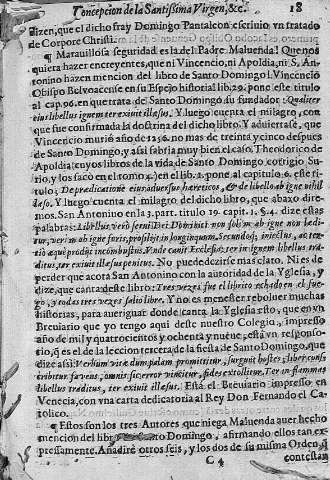 Concepcion de la Santissima Virgen, &c. 18
dizen, que el dicho fray Domingo Pantaleon escriuio vn tratado
de Corpore Christi.
¶ Marauillosa seguridad es la del Padre Maluenda! Que nos
quiera hazer encreyentes, que ni Vincencio, ni Apoldia, ni S. An-
tonino hazen mencion del libro de Santo Domingo! Vincencio
Obispo Beluacense en su Espejo historial lib. 29. pone este titulo
al cap. 96. en que trata de Santo Domingo su fundador: Qualiter
eius libellus ignem ter exiuit illæsus. Y luego cuenta el milagro, con
que fue confirmada la doctrina del dicho libro. Y aduiertase, que
Vincencio murio año de 1246. no mas de treinta y cinco despues
de Santo Domingo, y assi sabria muy bien el caso. Theodorico de
Apoldia, cuyos libros de la vida de Santo Domingo cotrigio Su-
rio, y los sacò en el romo 4.) en el lib. 1. pone al capitulo 6. este ti-
tulo; De prædicatione eius aduersus hæreticos, & de libello ab igne nihil
læso. Y luego cuenta el milagro del dicho libro, que abaxo dire-
mos. San Antonino en la 3. part. titulo 19. capit. 1. §. 4. dize estas
palabras: Libellus verò serui Dei Dominici non solùm ab igne non læ-
ditur, verùm ab igne foris, prosilijt in longinquum, Secundò, iniectus, ac ter-
tiò æquè prodijt incombustus. Vnde canit Ecclesia: ter in ignem libellus tra-
ditus, ter exiuit illæsus penitus. No puede dezirse mas claro. Ni es de
perder que acota San Antonino con la autoridad de la Yglesia, y
dize, que canta deste libro: Tres vezes fue el librito echado en el fue-
go, y todas tres vezes salio libre. Y no es menester reboluer muchas
historias, para aueriguar donde canta la Yglesia esto, que en vn
Breuiario que yo tengo aqui deste nuestro Colegio, impresso
año de mil y quatrocientos y ochenta y nueue, està vn responso-
rio, q̃ es el de la leccion tercera, de la fiesta de Santo Domingo, que
dize assi: Verbum vitæ dum palam promitur, surgunt hostes, liber conscri-
ribitur fauens, omnis sic error vincitur, fides extollitur. Ter in flammas
libellus traditus, ter exiuit illæsus. Està el Breuiario impresso en
Venecia, con vna carta dedicatoria al Rey Don Fernando el Ca-
tolico.
¶ Estos son los tres Autores que niega Maluenda auer hecho
mencion del libro Santo Domingo, afirmando ellos tan ex-
pressamente. Añadirè otros seis, y los dos de su misma Orden, q̃
C 4 contestan